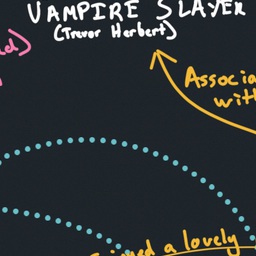 VAMPIRE SLAYER
(Trevor Herbert)
Associa
with
a lovely